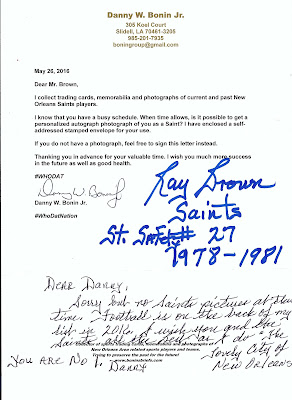 Danny W. Bonin Jr.
306 Koel Court
Slidell, LA 70461-3205
985-201-7935
boningroup@gmail.com
May 26, 2016
Dear Mr. Brown,
I collect trading cards, memorabilia and photographs of current and past New
Orleans Saints players.
I know that you have a busy schedule. When time allows, is it possible to get a
personalized autograph photograph of you as a Saint? I have enclosed a self-addressed
stamped envelope for your use.
If you do not have a photograph, feel free to sign this letter instead.
Thanking you in advance for your valuable time. I wish you much more success
in the future as well as good health.
#WHODAT
Danny W. Bonin Jr.
Danny W. Bonin Jr.
#WhoDatNation
Ray Brown
Saints
St. Safety # 27
1978-1981
Dear Danny,
Sorry but no Saints pictures at this
time. Football is on the back of my
list in 2016. I wish you and the
Saints all the best as I do "The
Lovely City of
New Orleans
New Orleans Area related sports players and teams.
Trying to preserve the past for the future!
www.boninbriefs.com
You are No 1. Danny